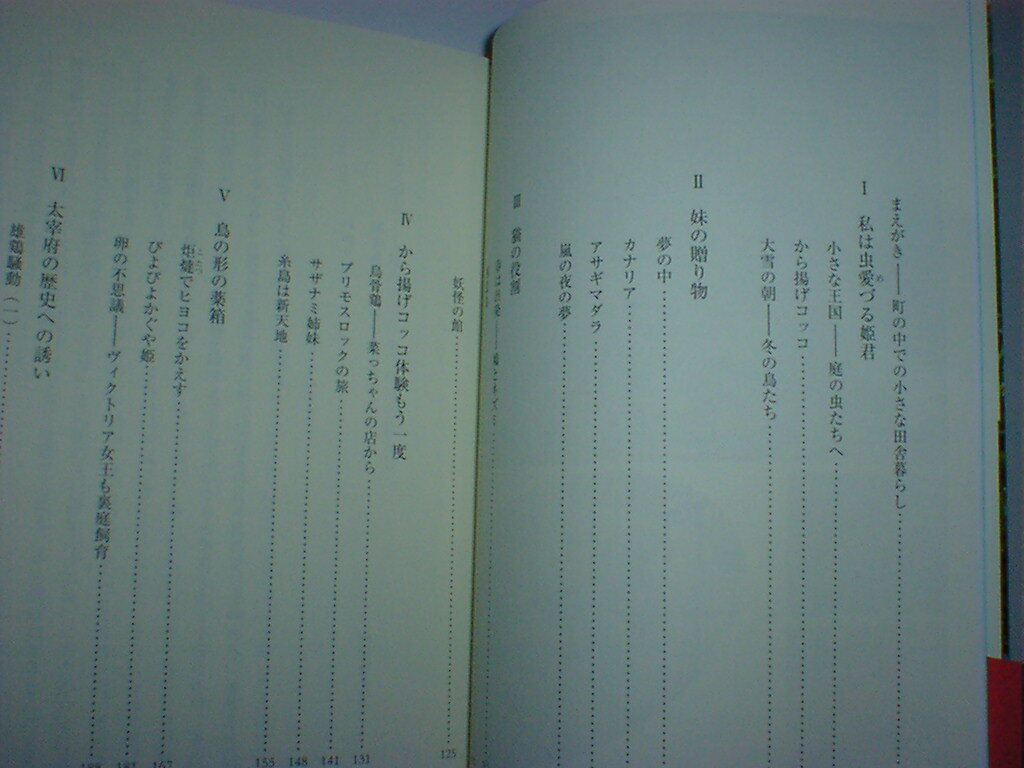 まえがき――町の中での小さな田舎暮らし
Ⅰ 私は虫愛づる姫君
め
小さな王国――庭の虫たちへ
から揚げコッコ
大雪の朝――冬の鳥たち
Ⅱ 妹の贈り物
夢の中
カナリア
アサギマダラ
嵐の夜の夢
Ⅲ 猫の役割
妖怪の館 125
Ⅳ から揚げコッコ体験もう一度
烏骨鶏――菜っちゃんの店から 131
プリモスロックの旅 141
サザナミ姉妹 148
糸島は新天地 155
Ⅴ 鳥の形の薬箱
炬燵でヒヨコをかえす 167
こたつ
ぴよぴよかぐや姫
卵の不思議――ヴィクトリア女王も裏庭飼育
Ⅵ 太宰府の歴史への誘い
雄鶏騒動(一)